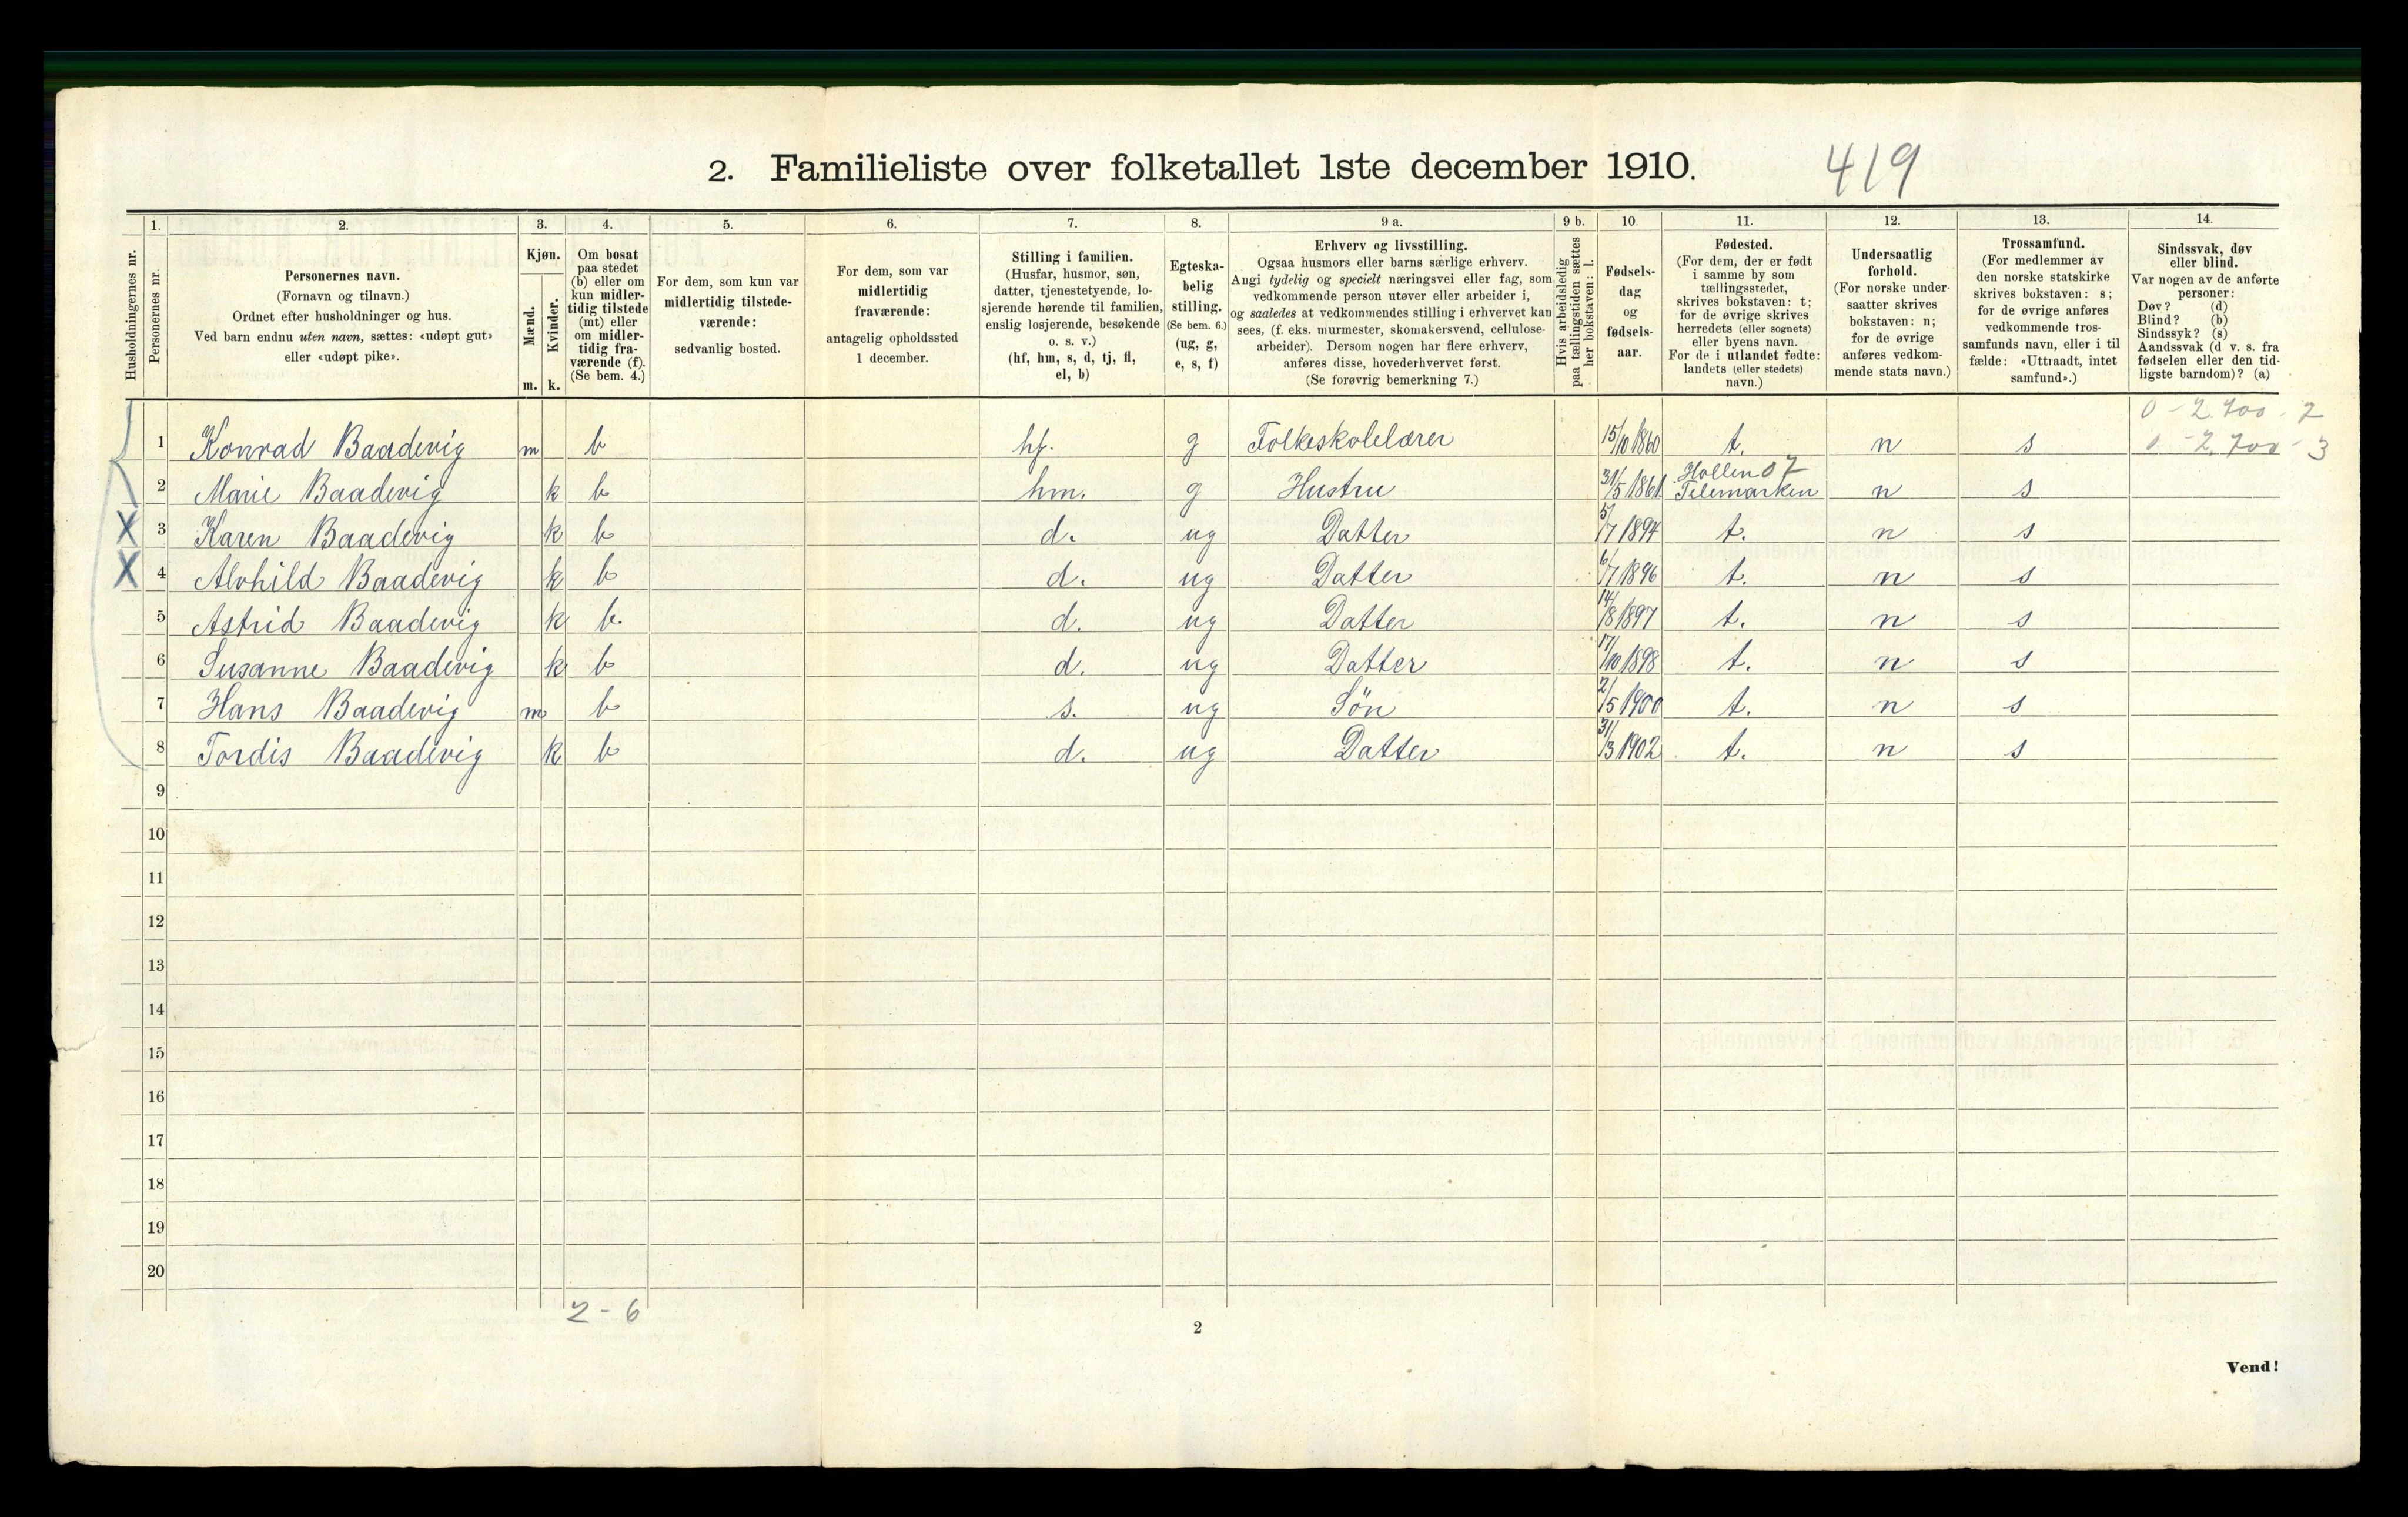 2. Familieliste over folketallet 1ste december 1910.
419
Husholdningernes nr.
1.
Personernes nr.
2.
Personernes navn.
(Fornavn og tilnavn.)
Ordnet efter husholdninger og hus.
Ved barn endnu uten navn, sættes: «udøpt gut»
eller «udøpt pike».
3.
Kjøn.
Mænd.
Kvinder.
m. k.
4.
Om bosat
paa stedet
(b) eller om
kun midler-
tidig tilstede
(mt) eller
om midler-
tidig fra-
værende (f).
(Se bem. 4.)
5.
For dem, som kun var
midlertidig tilstede-
værende:
sedvanlig bosted.
6.
For dem, som var
midlertidig
fraværende:
antagelig opholdssted
1 december.
7.
Stilling i familien.
(Husfar, husmor, søn,
datter, tjenestetyende, lo-
sjerende hørende til familien,
enslig losjerende, besøkende
o. s. v.)
(hf, hm, s, d, tj, fl,
el, b)
8.
Egteska-
belig
stilling.
(Se bem. 6.)
(ug, g,
e, s, f)
9 a.
Erhverv og livsstilling.
Ogsaa husmors eller barns særlige erhverv.
Angi tydelig og specielt næringsvei eller fag, som
vedkommende person utøver eller arbeider i,
og saaledes at vedkommendes stilling i erhvervet kan
sees, (f. eks. murmester, skomakersvend, cellulose-
arbeider). Dersom nogen har flere erhverv,
anføres disse, hovederhvervet først.
(Se forøvrig bemerkning 7.)
9 b.
Hvis arbeidsledig
paa tællingstiden sættes
her bokstaven: l.
10.
Fødsels-
dag
og
fødsels-
aar.
11.
Fødested.
(For dem, der er født
i samme by som
tællingsstedet,
skrives bokstaven: t;
for de øvrige skrives
herredets (eller sognets)
eller byens navn.
For de i utlandet fødte:
landets (eller stedets)
navn.)
12.
Undersaatlig
forhold.
(For norske under-
saatter skrives
bokstaven: n;
for de øvrige
anføres vedkom-
mende stats navn.)
13.
Trossamfund.
(For medlemmer av
den norske statskirke
skrives bokstaven: s;
for de øvrige anføres
vedkommende tros-
samfunds navn, eller i til
fælde: «Uttraadt, intet
samfund».)
14.
Sindssvak, døv
eller blind.
Var nogen av de anførte
personer:
Døv? (d)
Blind? (b)
Sindssyk? (s)
Aandssvak (d v. s. fra
fødselen eller den tid-
ligste barndom)? (a)
0 - 2.700 - 2
1 Konrad Baadevig m b hf. g Folkeskolelærer 15/10 1860 t. n s 0 - 2.700 - 3
Hollen 07
2 Marie Baadevig k b hm. g Hustru 31/5 1861 Telemarken n s
X 3 Karen Baadevig k b d. ug Datter 5/7 1894 t. n s
X 4 Alvhild Baadevig k b d. ug Datter 6/7 1896 t. n s
5 Astrid Baadevig k b. d. ug Datter 14/8 1897 t. n s
6 Susanne Baadevig k b d. ug Datter 17/10 1898 t. n s
7 Hans Baadevig m b s. ug Sön 2/5 1900 t. n s
8 Tordis Baadevig k b d. ug Datter 31/3 1902 t. n s
9
10
11
12
13
14
15
16
17
18
19
20
2 - 6
2
Vend!